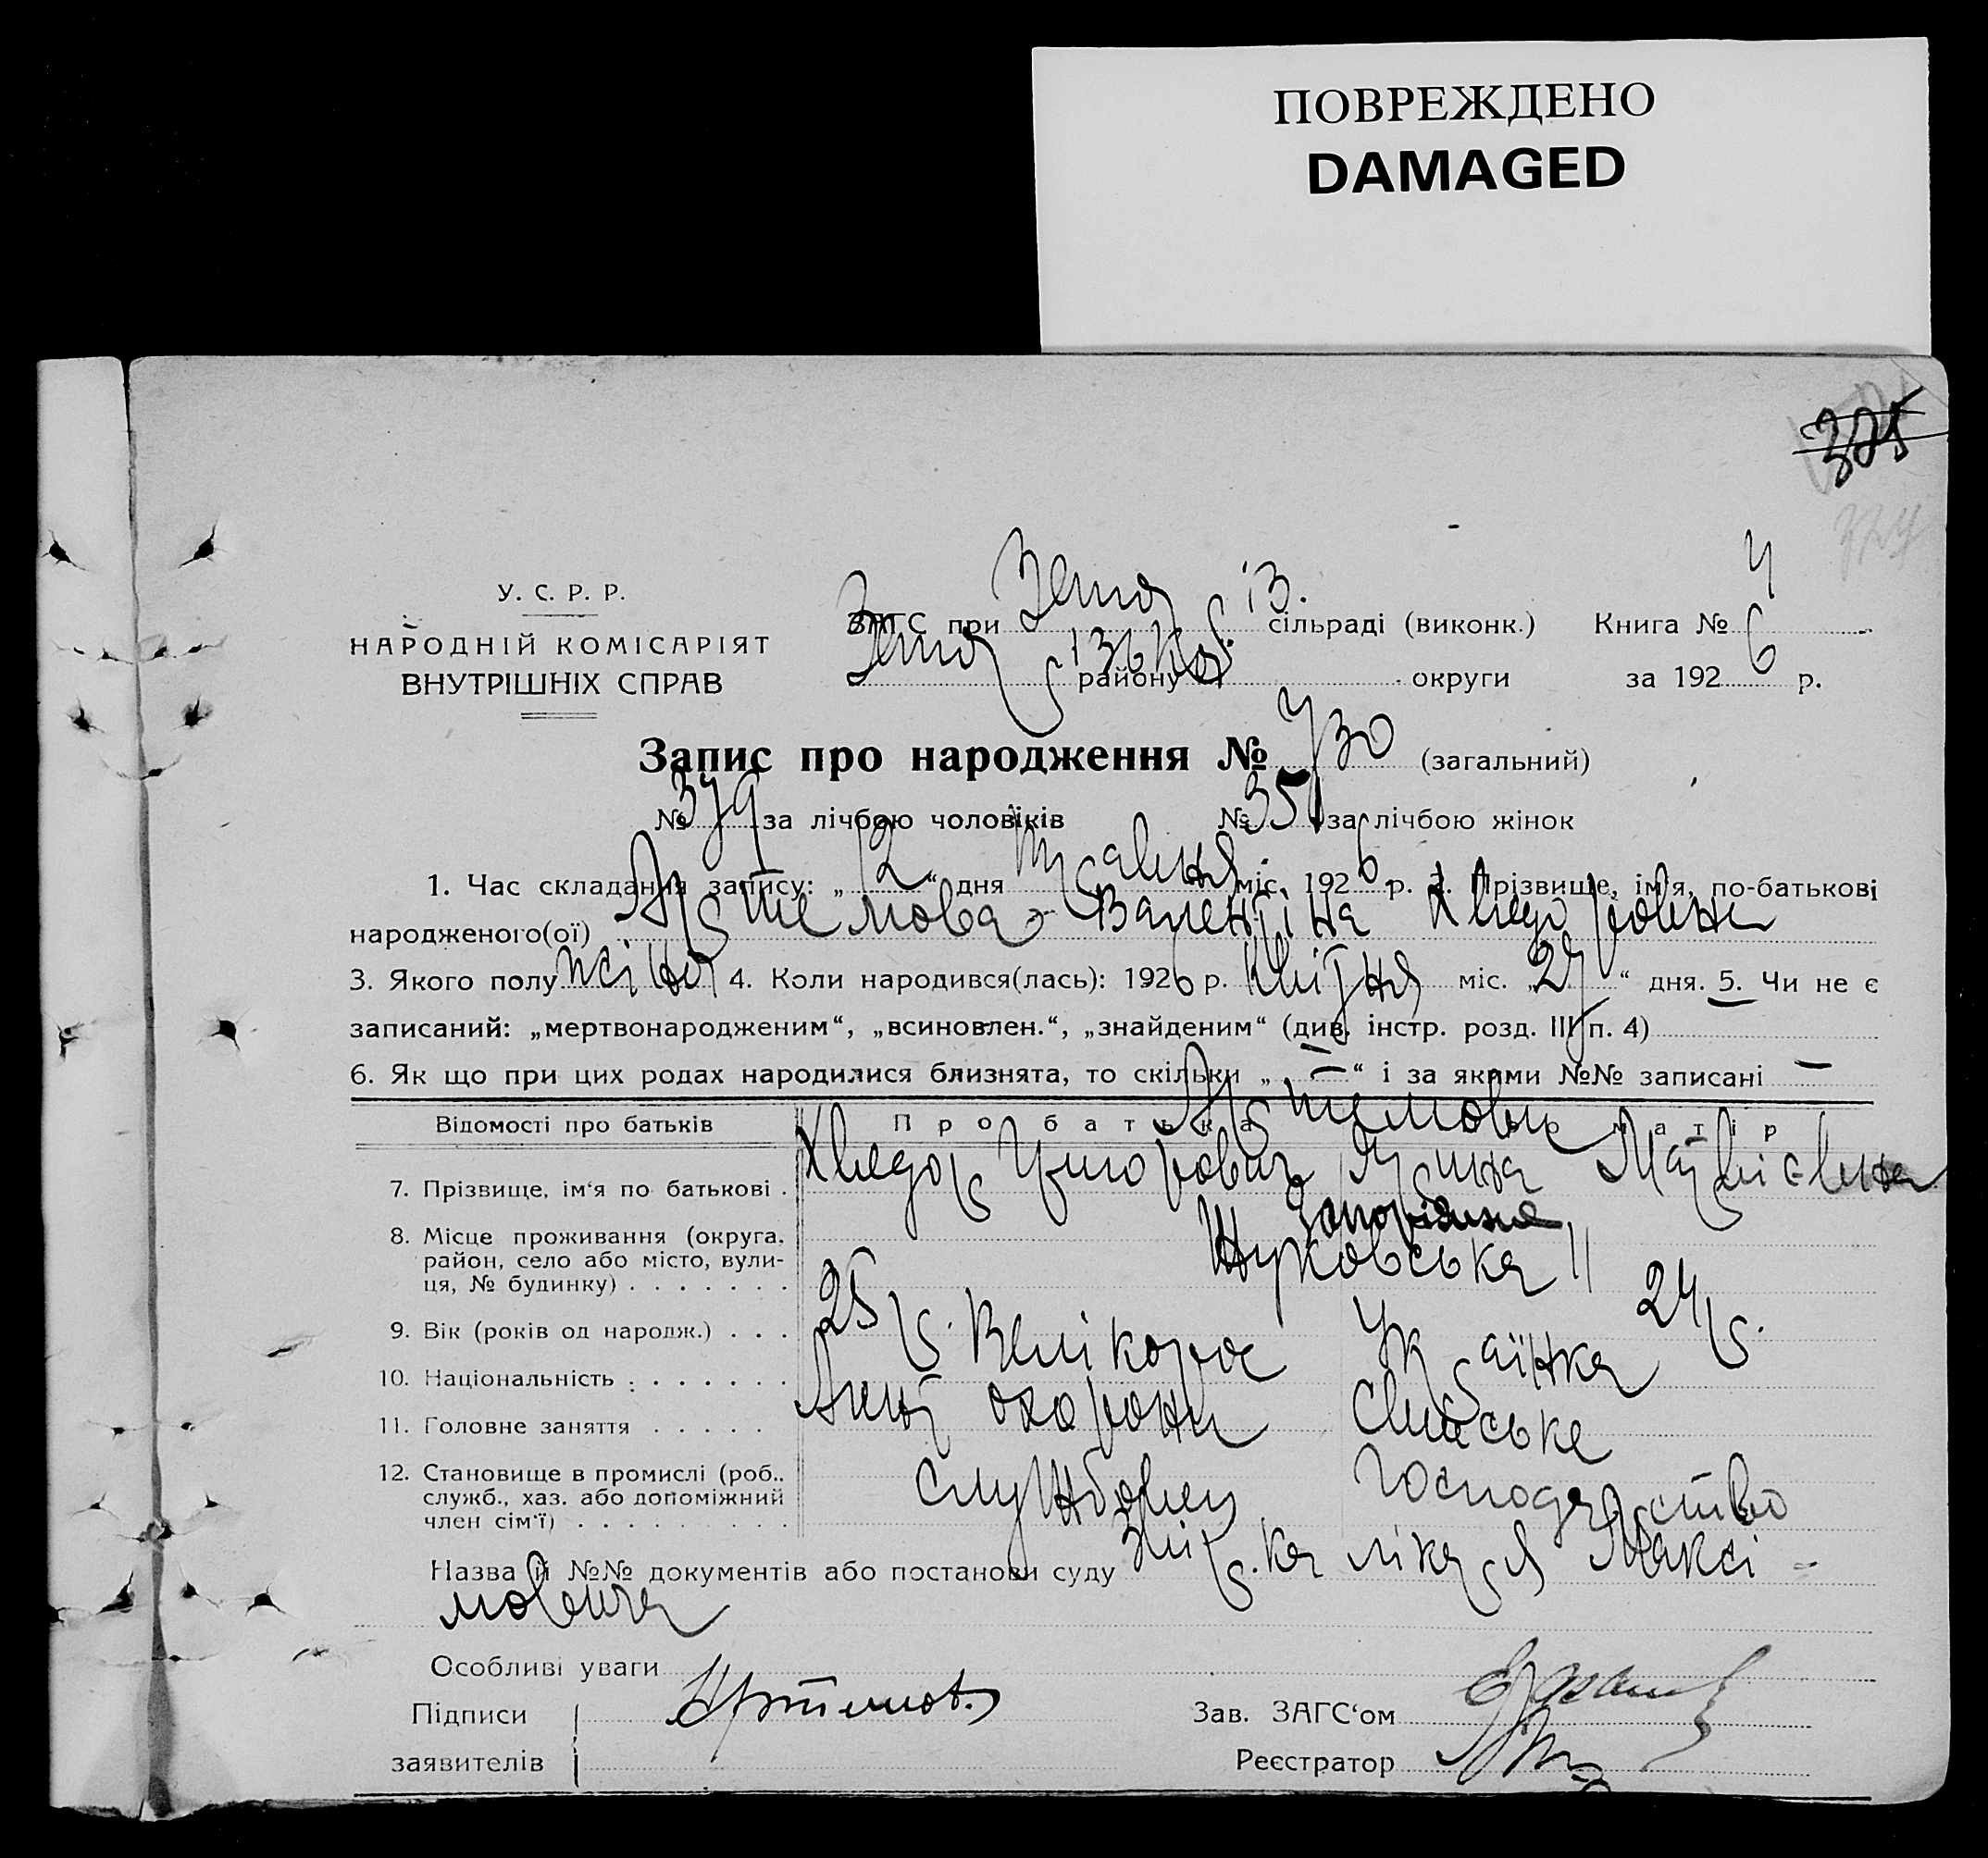 ПОВРЕЖДЕНО
DAMAGED
325
324
У. С. Р. Р.
НАРОДНІЙ КОМІСАРІЯТ
ВНУТРІШНІХ СПРАВ
ЗАГС при сільраді (виконк.) Книга № 4
району округи за 1926 р.
Запис про народження № 730 (загальний)
№ 379 за лічбою чоловіків № 351 за лічбою жінок
1. Час складання запису: „12“ дня травня міс. 1926 р. 2. Прізвище, ім'я, по-батькові
народженого(ої) Артемова Валентіна Хведоровна
3. Якого полу жіноч 4. Коли народився(лась): 1926 р. квітня міс. „27“ дня. 5. Чи не є
записаний: „мертвонародженим“, „всиновлен.“, „знайденим“ (див. інстр. розд. III п. 4) —
6. Як що при цих родах народилися близнята, то скільки „—“ і за якими №№ записані —
Відомості про батьків Про батька Про матір
Артемови
7. Прізвище, ім'я по батькові . Хведор Григорович Ірина Матвієвна
8. Місце проживання (округа, Запоріжжя
район, село або місто, вули- Жуковська 11
ця, № будинку) . . . . . . .
9. Вік (років од народж.) . . . 25 р. 24 р.
10. Національність . . . . . . . Велікорос Українка
11. Головне заняття . . . . . Агент охорони Сільське
12. Становище в промислі (роб., службовець господарство
служб., хаз. або допоміжний
член сім'ї) . . . . . . . . .
Назва й №№ документів або постанови суду лікаря Максі-
мовича
Особливі уваги
Підписи Артемов
заявителів
Зав. ЗАГС'ом
Реєстратор